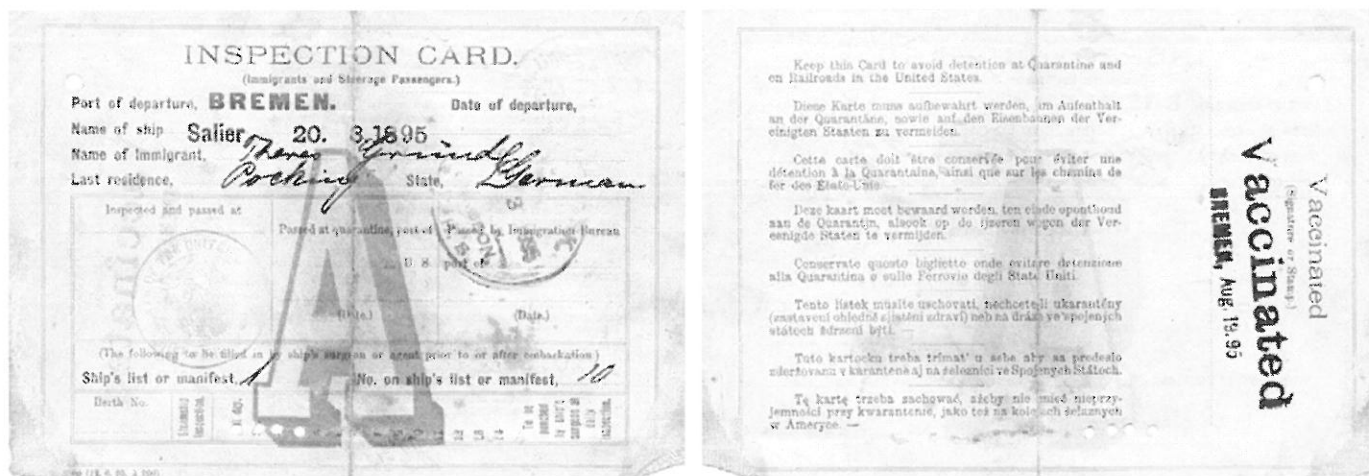 INSPECTION CARD.
(Immigrants and Steerage Passengers.)
Port of departure, BREMEN. Date of departure,
Name of ship Salier 20. 8.1895
Name of Immigrant, Theres Gründl
Last residence, Pocking State, German
Inspected and passed at
Passed at quarantine, port of
Passed by Immigration Bureau
U. S. port of
(Date.) (Date.)
(The following to be filled in by ship's surgeon or agent prior to or after embarkation)
Ship's list or manifest, 1 No. on ship's list or manifest, 10
Berth No.
Steamship
Inspection.
To be
punched
by ship's
surgeon at
daily
inspection.
A
Keep this Card to avoid detention at Quarantine and
on Railroads in the United States.
Diese Karte muss aufbewahrt werden, um Aufenthalt
an der Quarantäne, sowie auf den Eisenbahnen der Ver-
einigten Staaten zu vermeiden.
Cette carte doit être conservée pour éviter une
détention à la Quarantaine, ainsi que sur les chemins de
fer des États-Unis.
Deze kaart moet bewaard worden, ten einde oponthoud
aan de Quarantijn, alsook op de ijzeren wegen der Ver-
eenigde Staten te vermijden.
Conservate questo biglietto onde evitare detenzione
alla Quarantina e sulle Ferrovie degli Stati Uniti.
Tento lístek musíte uschovati, nechcete-li ukarantény
(zastavení ohledně zjistění zdraví) neb na dráze ve spojených
státech zdrženi býti. —
Tuto kartocku treba trímat' u sebe aby sa predeslo
zderžovanu v karantene aj na železnici ve Spojených Státoch.
Tę kartę trzeba zachować, ażeby nie mieć nieprzy-
jemności przy kwarantenie, jako też na kolejach żelaznych
w Ameryce. —
Vaccinated
BREMEN, Aug. 19.95
Vaccinated
(Signature or Stamp.)